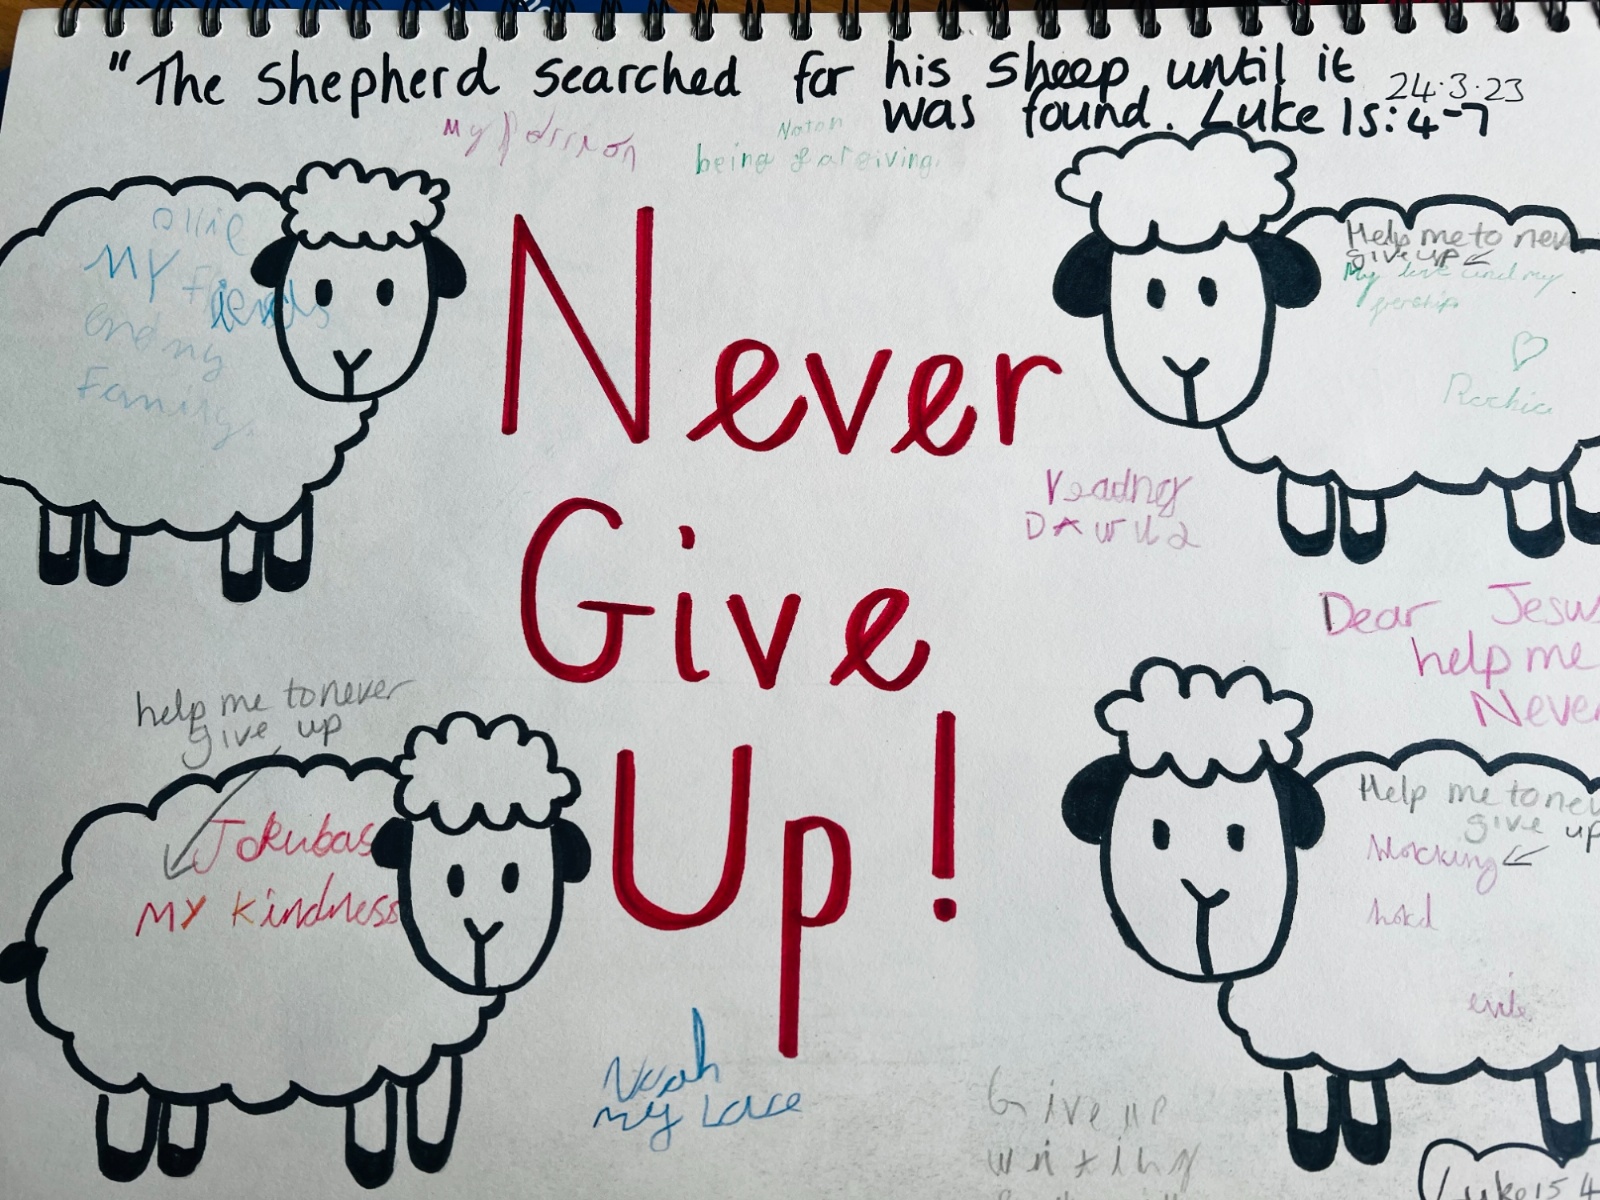 "The Shepherd searched for his sheep until it
was found. Luke 15:4-7
24.3.23
My
being
Ollie
My friends
and my
Family.
Never
Give
Up!
Help me to nev
give up
My love and my
Reading
Dear Jesus
help me
Never
help me to never
give up
Jokubas
MY kindness
Help me to nev
give up
Working
Noah
my
Give up
writing
Luke 15 4